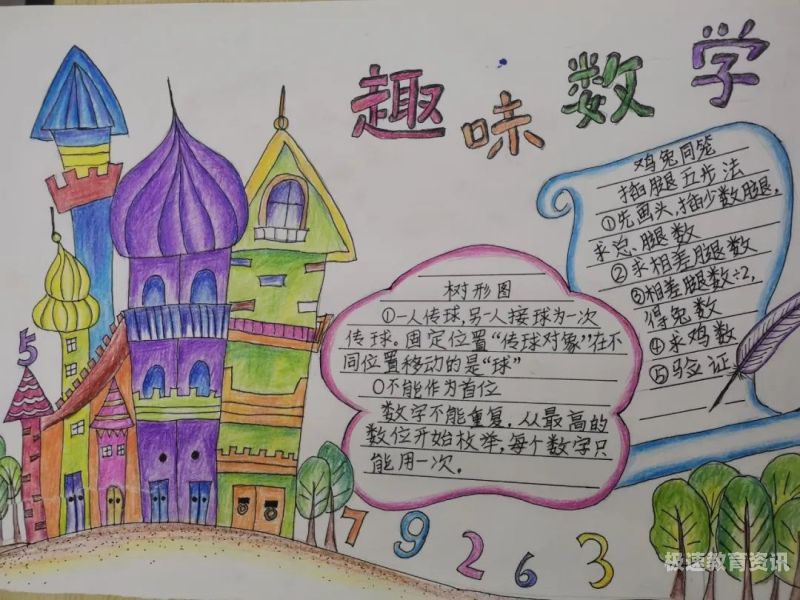 趣味数学
鸡兔同笼
插腿五步法
①先画头,插少数腿,
求总腿数
②求相差腿数
③相差腿数÷2,
得兔数
④求鸡数
⑤验证
树形图
①一人传球,另一人接球为一次
传球。固定位置“传球对象”在不
同位置移动的是“球”
0不能作为首位
数字不能重复.从最高的
数位开始枚举,每个数字只
能用一次.
5
7 9 2 6 3
极速教育资讯